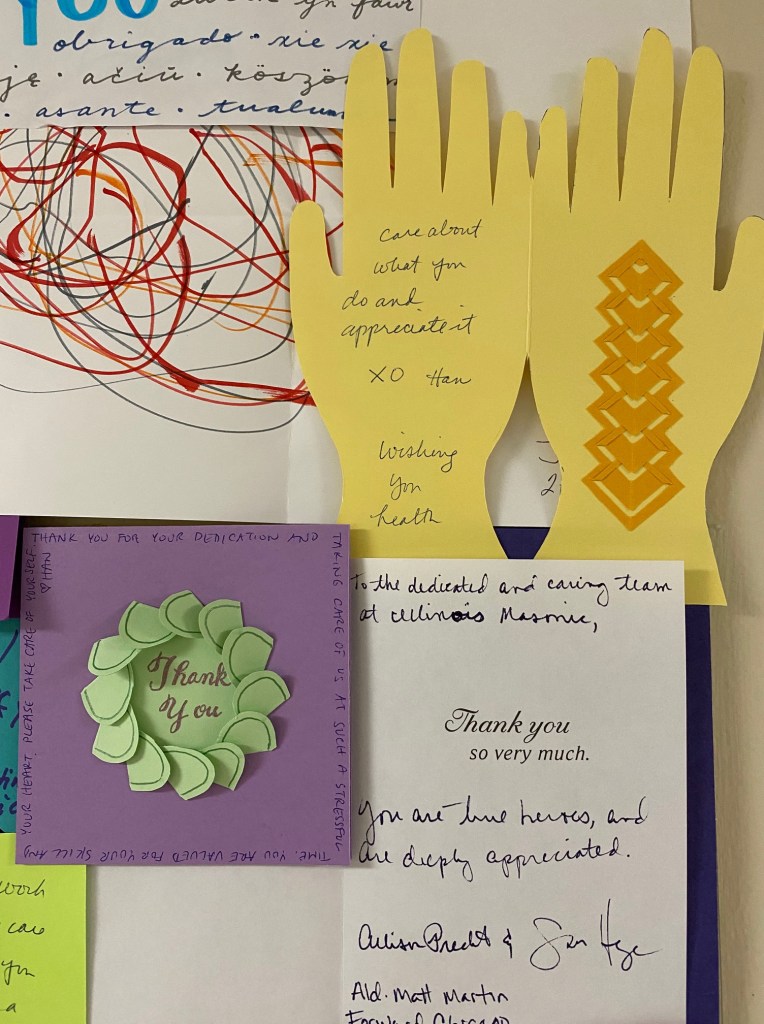 YOU
obrigado · xie xie
ję · ačiū · köszönöm
· asante ·
care about
what you
do and
appreciate it
XO Han
wishing
you
health
THANK YOU FOR YOUR DEDICATION AND
TAKING CARE OF US AT SUCH A STRESSFUL
TIME. YOU ARE VALUED FOR YOUR SKILL AND
YOUR HEART. PLEASE TAKE CARE OF YOURSELF.
♡HAN
Thank
You
To the dedicated and caring team
at Illinois Masonic,
Thank you
so very much.
You are true heroes, and
are deeply appreciated.
Allison Precht &
Ald. Matt Martin
Forward Chicago
work
care
you
a